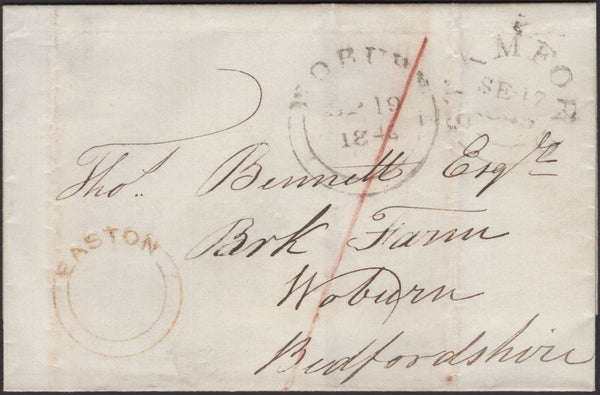 WOBURN
SE 19
184
MFOR
SE-17
Thos. Bennett Esqre
Park Farm
Woburn
Bedfordshire
EASTON